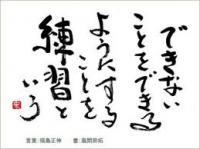 できない
ことをできる
ようにする
ことを
練習と
いう
言葉:福島正伸 書:風間宗拓